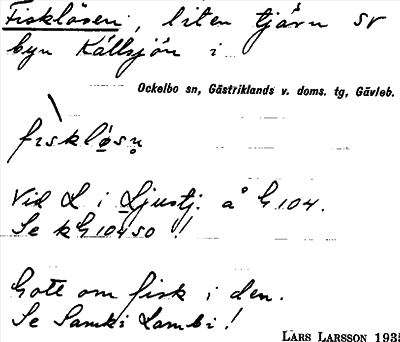 Fisklösen, liten tjärn SV
byn Källsjön i
Ockelbo sn, Gästriklands v. doms. tg, Gävleb.
fìsklø̀sṇ
Vid L i Ljustj. å G 104.
Se kG 10450 !
Gott om fisk i den.
Se Samki Lambi!
LARS LARSSON 1935